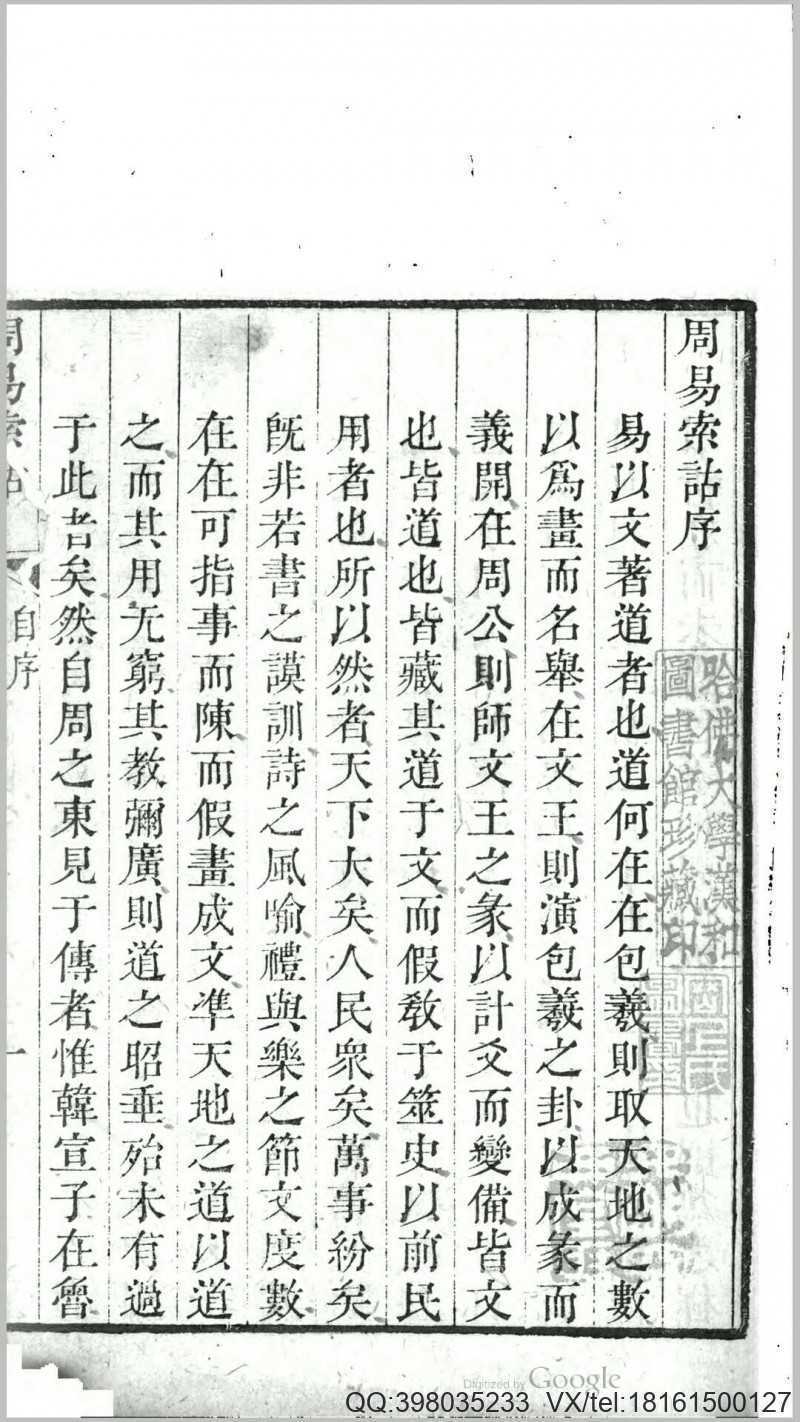 周易索詁序
易以文著道者也道何在在包羲則取天地之數
以爲畫而名舉在文王則演包羲之卦以成彖而
義開在周公則師文王之彖以計爻而變備皆文
也皆道也皆藏其道于文而假敎于筮史以前民
用者也所以然者天下大矣人民衆矣萬事紛矣
旣非若書之謨訓詩之風喻禮與樂之節文度數
在在可指事而陳而假畫成文凖天地之道以道
之而其用无窮其教彌廣則道之昭垂殆未有過
于此者矣然自周之東見于傳者惟韓宣子在魯
周易索詁
自序
一
哈佛大學漢和
圖書館珍藏印
Digitized by Google
QQ:398035233 VX/tel:18161500127